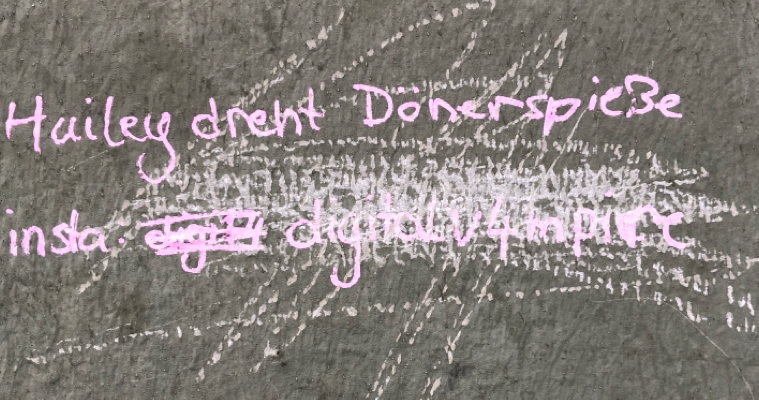 Hailey dreht Dönerspieße
insta. digitalv4mpire